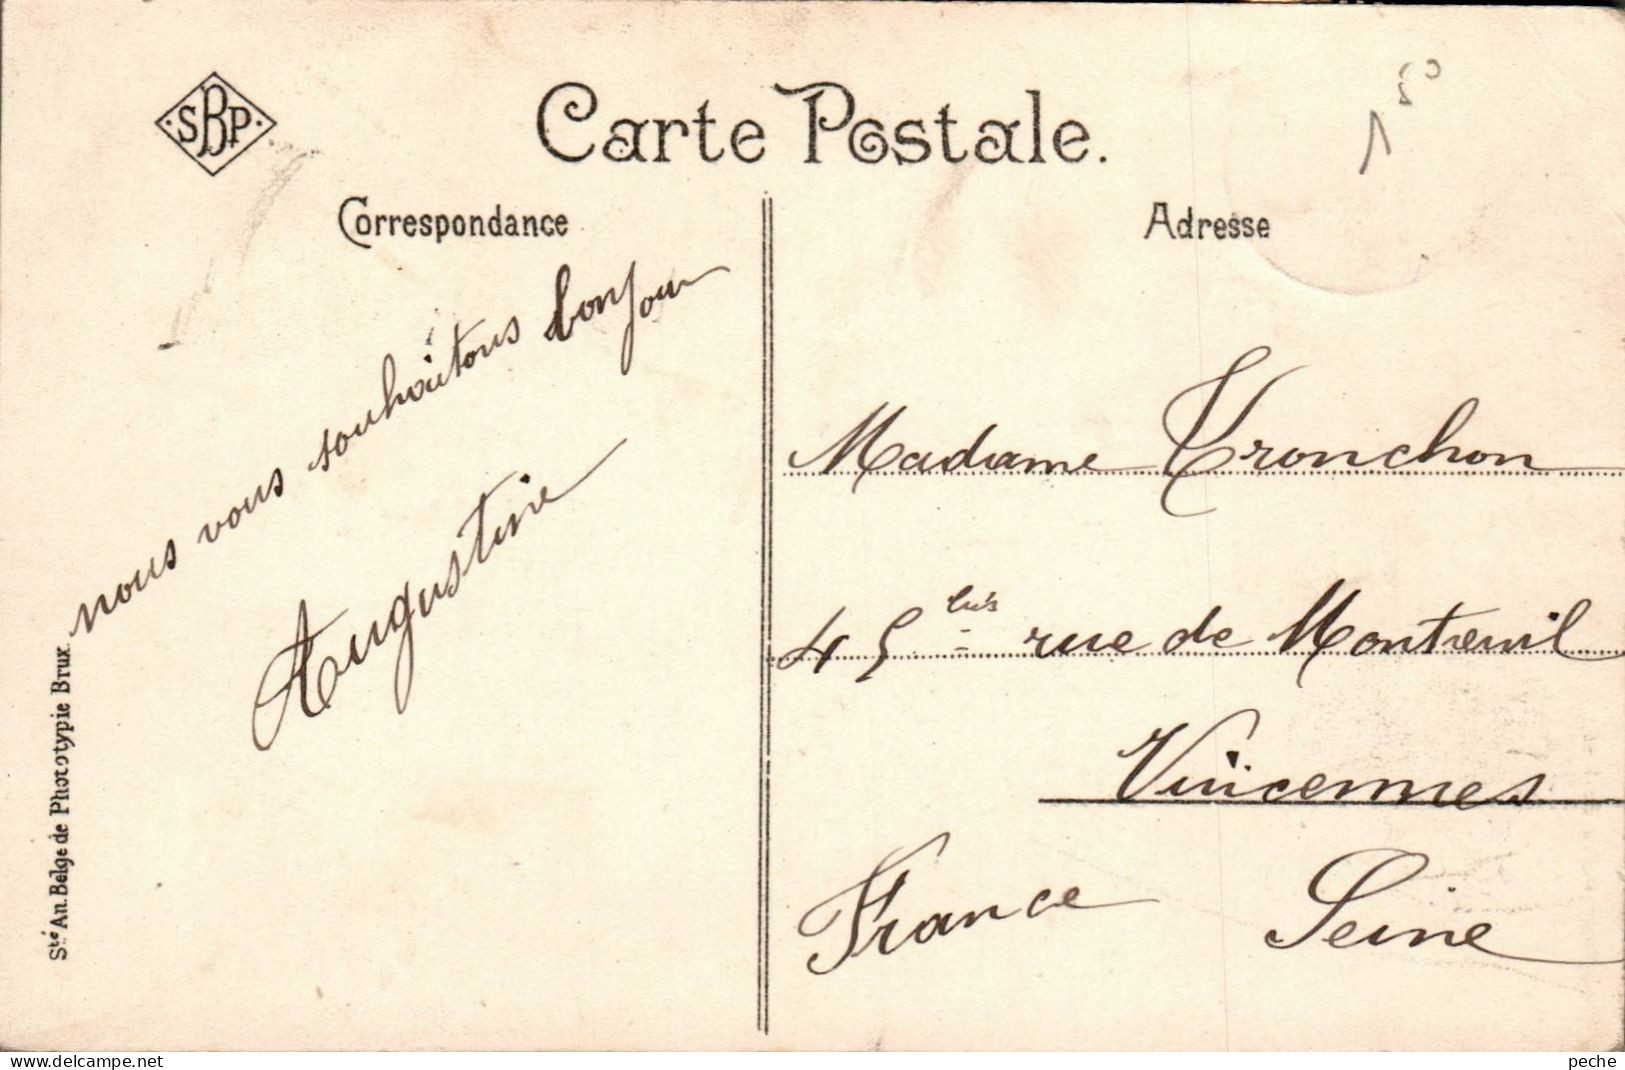 SBP
Carte Postale.
Correspondance
nous vous souhaitons bonjour
Augustine
Sté An. Belge de Phototypie Brux.
Adresse
1 50
Madame Tronchon
45 bis rue de Montreuil
Vincennes
France Seine
delcampe.net
peche